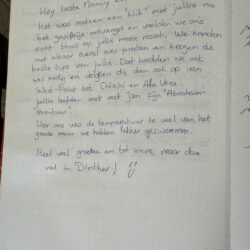 Hey, beste Nancy en
Het was meteen een "klik" met jullie na
het gastvrije ontvangst en voelden we ons
echt thuis op jullie mooie resort. We konden
met elkaar overal over praten en kregen de
beste tips van jullie. Dat hadden we ook
wel nodig en volgden die dan ook op van
West-Point tot Caichi en Aloe Vera.
Jullie leefden met met Jan zijn "Abraham-
avontuur".
Voor ons was de temperatuur te veel van het
goede maar we hebben lekker gezwommen.
Heel veel groeten en tot ziens, maar dan
wel in Dinther!